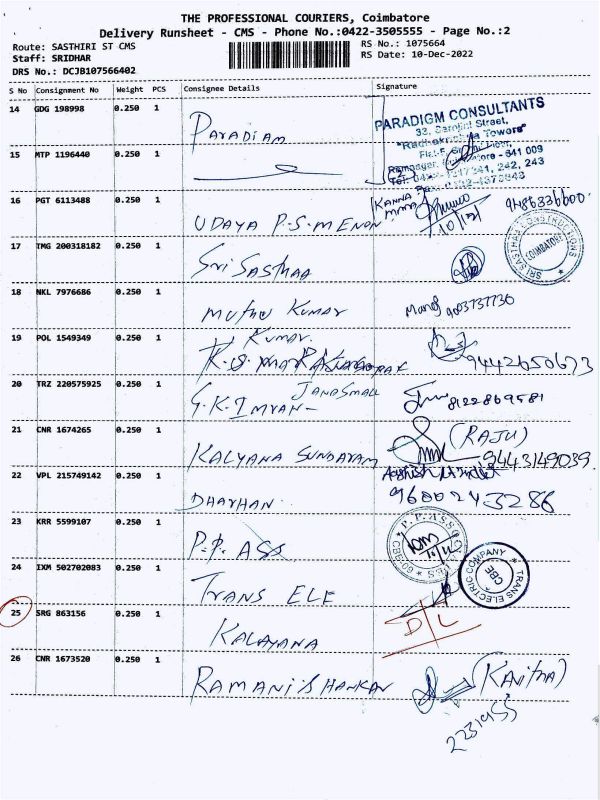 THE PROFESSIONAL COURIERS, Coimbatore
Delivery Runsheet - CMS - Phone No.:0422-3505555 - Page No.:2
Route: SASTHIRI ST CMS
Staff: SRIDHAR
DRS No.: DCJB107566402
RS No.: 1075664
RS Date: 10-Dec-2022
S No Consignment No Weight PCS Consignee Details Signature
14 GDG 198998 0.250 1 PARADIAM
PARADIGM CONSULTANTS
33, Sarojini Street,
"Radhakrishna Towers"
15 MTP 1196440 0.250 1
16 PGT 6113488 0.250 1 UDAYA P.S.MENON KANNA 9486336600
10/12/
17 TMG 200318182 0.250 1 Sri SASTHAA
SRI SASTHAA CONSTRUCTIONS COIMBATORE
18 NKL 7976686 0.250 1 MUTHU KUMAR Manoj 9003737730
19 POL 1549349 0.250 1 KUMAR. 9442650673
20 TRZ 220575925 0.250 1 G.K.IMRAN- JANDSMALL 8122869581
21 CNR 1674265 0.250 1 KALYANA SUNDARAM (RAJU) 9443149039.
22 VPL 215749142 0.250 1 DHARHAN. 9600243286
23 KRR 5599107 0.250 1 P.P. ASS
24 IXM 502702083 0.250 1 TRANS ELE
TRANS ELECTRIC COMPANY CBE
25 SRG 863156 0.250 1 KALAYANA D/L
26 CNR 1673520 0.250 1 RAMANISHANKAR (Kavitha)
2231955